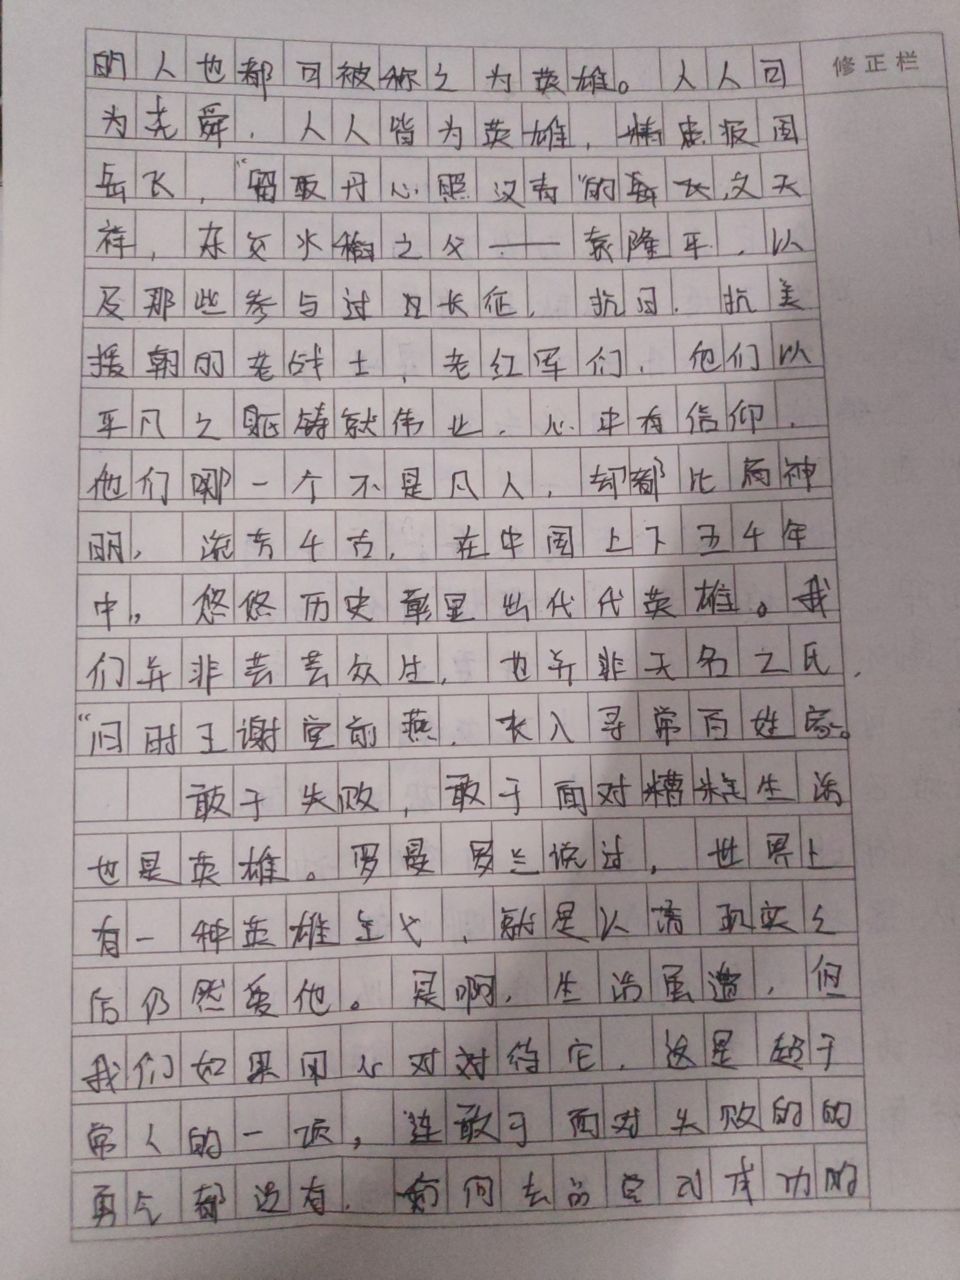 修正栏
的人也都可被称之为英雄。人人可
为尧舜,人人皆为英雄,精忠报国
岳飞,“留取丹心照汉青”的岳飞,文天
祥,杂交水稻之父——袁隆平,以
及那些参与过长征,抗日,抗美
援朝的老战士,老红军们,他们以
平凡之躯铸就伟业,心中有信仰,
他们哪一个不是凡人,却都比肩神
明,流芳千古,在中国上下五千年
中,悠悠历史彰显出代代英雄。我
们并非芸芸众生,也并非无名之氏,
“旧时王谢堂前燕,长入寻常百姓家。
敢于失败,敢于面对糟糕生活
也是英雄。罗曼罗兰说过,世界上
有一种英雄主义,就是认清现实之
后仍然爱他。是啊,生活虽遭,但
我们如果用心对对待它,这是超于
常人的一项,连敢于面对失败的的
勇气都没有,何去品尝到成功的